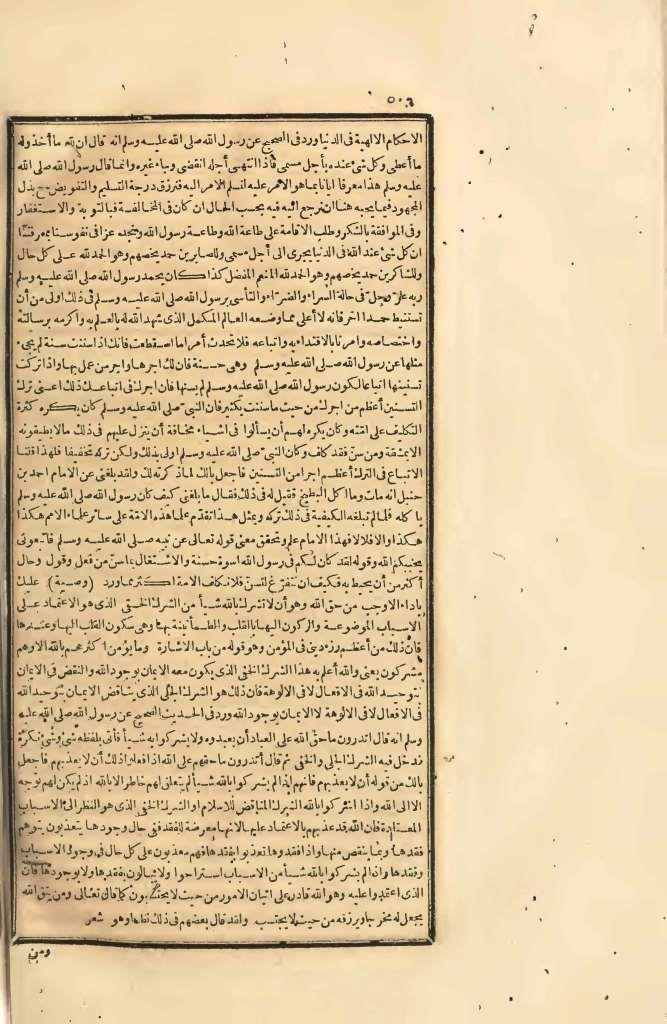 ٥٠٦
الاحكام الالهية فى الدنيا ورد فى الصحيح عن رسول الله صلى الله عليه وسلم انه قال ان لله ما أخذ وله
ما أعطى وكل شئ عنده بأجل مسمى فاذا انتهى أجله انقضى وجاء غيره وانما قال رسول الله صلى الله
عليه وسلم هذا معرفا ايانا بما هو الامر عليه لنسلم الامر اليه فنرزق درجة التسليم والتفويض مع بذل
المجهود فيما يحبه منا ان نرجع اليه فيه بحسب الحال ان كان فى المخالفة فبالتوبة والاستغفار
وفى الموافقة بالشكر وطلب الاقامة على طاعة الله وطاعة رسول الله ونجد عزا فى نفوسنا بمعرفتنا
ان كل شئ عند الله فى الدنيا يجرى الى أجل مسمى وللصابرين حمد يخصهم وهو الحمد لله على كل حال
وللشاكرين حمد يخصهم وهو الحمد لله المنعم المفضل كذا كان يحمد رسول الله صلى الله عليه وسلم
ربه عز وجل فى حالة السراء والضراء والتأسى برسول الله صلى الله عليه وسلم فى ذلك أولى من أن
تستنبط حمدا آخر فانه لا أعلى مما وضعه العالم المكمل الذى شهد الله له بالعلم به وأكرمه برسالته
واختصاصه وامرنا بالاقتداء به واتباعه فلا تحدث أمرا ما استطعت فانك اذا سننت سنة لم يجئ
مثلها عن رسول الله صلى الله عليه وسلم وهى حسنة فان لك اجرها واجر من عمل بها واذا تركت
تسنينها اتباعا لكون رسول الله صلى الله عليه وسلم لم يسنها فان اجرك فى اتباعك ذلك اعنى ترك
التسنين أعظم من اجرك من حيث ما سننت بكثير فان النبى صلى الله عليه وسلم كان يكره كثرة
التكليف على امته وكان يكره لهم أن يسألوا فى اشياء مخافة أن ينزل عليهم فى ذلك مالا يطيقونه
الا بمشقة ومن سن فقد كلف وكان النبى صلى الله عليه وسلم اولى بذلك ولكن تركه تخفيفا فلهذا قلنا
الاتباع فى الترك أعظم اجرا من التسنين فاجعل بالك لما ذكرته لك ولقد بلغنى عن الامام احمد بن
حنبل انه مات وما اكل البطيخ فقيل له فى ذلك فقال ما بلغنى كيف كان رسول الله صلى الله عليه وسلم
يا كله فلما لم تبلغه الكيفية فى ذلك تركه وبمثل هذا تقدم علماء هذه الامة على سائر علماء الامم هكذا
هكذا والا فلا لا فهذا الامام علم وتحقق معنى قوله تعالى عن نبيه صلى الله عليه وسلم فاتبعونى
يحببكم الله وقوله لقد كان لكم فى رسول الله اسوة حسنة والاشتغال بما سن من فعل وقول وحال
أكثر من أن يحيط به فكيف ان نتفرغ لنسن فلا نكلف الامة اكثر مما ورد (وصية) عليك
باداء الاوجب من حق الله وهو أن لا تشرك بالله شيأ من الشرك الخفى الذى هو الاعتماد على
الاسباب الموضوعة والركون اليها بالقلب والطمأنينة بها وهى سكون القلب اليها وعندها
فان ذلك من أعظم رزء دينى فى المؤمن وهو قوله من باب الاشارة وما يؤمن اكثرهم بالله الا وهم
مشركون يعنى والله أعلم به هذا الشرك الخفى الذى يكون معه الايمان بوجود الله والنقض فى الايمان
بتوحيد الله فى الافعال لا فى الالوهة فان ذلك هو الشرك الجلى الذى يناقض الايمان بتوحيد الله
فى الافعال لا فى الالوهة لا الايمان بوجود الله ورد فى الحديث الصحيح عن رسول الله صلى الله عليه
وسلم انه قال اتدرون ما حق الله على العباد أن يعبدوه ولا يشركوا به شيأ فأتى بلفظة شئ وشئ نكرة
فدخل فيه الشرك الجلى والخفى ثم قال أتدرون ما حقهم على الله اذا فعلوا ذلك أن لا يعذبهم فاجعل
بالك من قوله أن لا يعذبهم فانهم اذا لم يشركوا بالله شيأ لم يتعلق لهم خاطر الا بالله اذ لم يكن لهم توجه
الا الى الله واذا اشركوا بالله الشرك المناقض للاسلام او الشرك الخفى الذى هو النظر الى الاسباب
المعتادة فان الله قد عذبهم بالاعتماد عليها لانها معرضة للفقد ففى حال وجودها يتعذبون بتوهم
فقدها وبما ينقص منها واذا فقدوها تعذبوا بفقدها فهم معذبون على كل حال فى وجود الاسباب
وفقدها واذا لم يشركوا بالله شيأ من الاسباب استراحوا ولا يبالون بفقدها ولا بوجودها فان
الذى اعتمدوا عليه وهو الله قادر على اتيان الامور من حيث لا يحتسبون كما قال تعالى ومن يتق الله
يجعل له مخرجا ويرزقه من حيث لا يحتسب ولقد قال بعضهم فى ذلك نظما وهو شعر
ومن